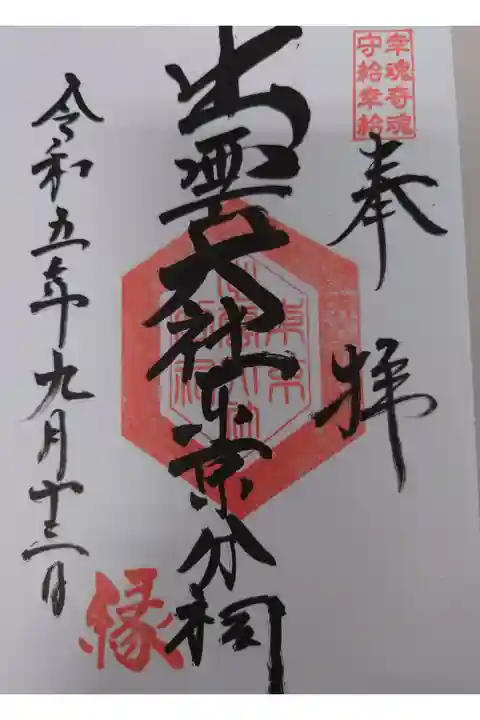 幸魂奇魂
守給幸給
奉拝
出雲大社東京分祠
令和五年九月十三日
縁